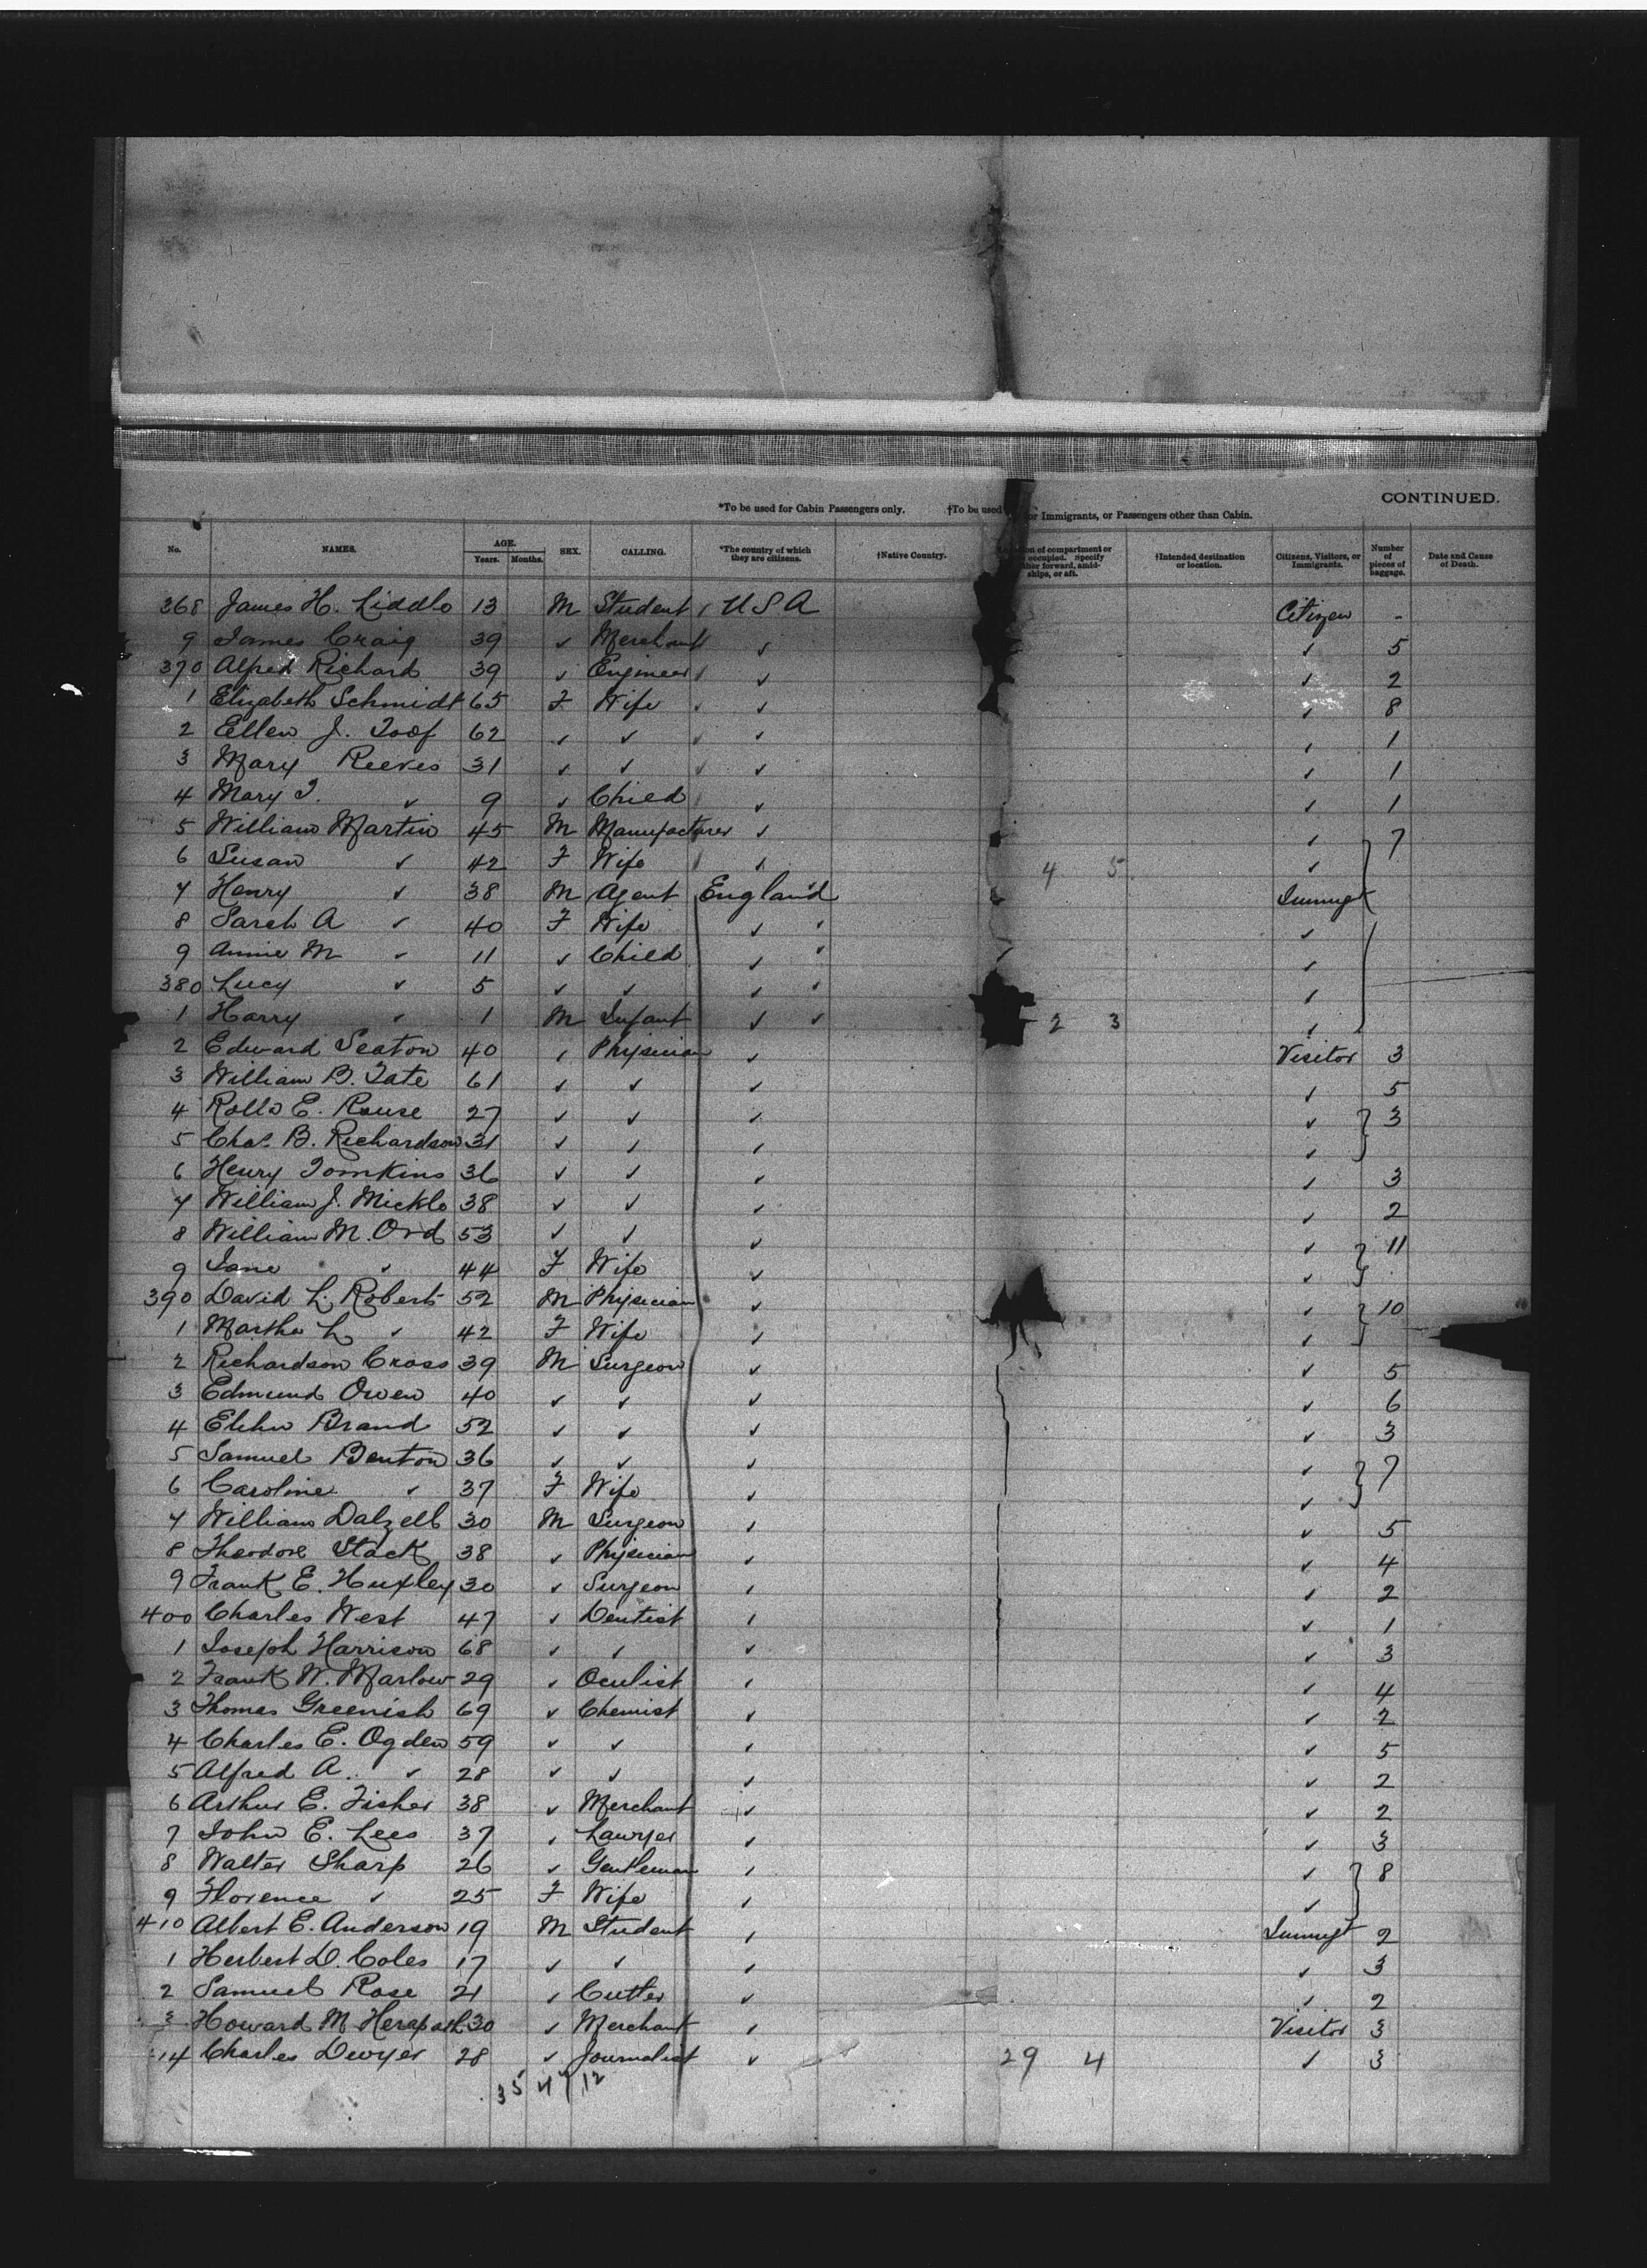 CONTINUED.
*To be used for Cabin Passengers only. †To be used for Immigrants, or Passengers other than Cabin.
No. NAMES. AGE. Years. Months. SEX. CALLING. *The country of which they are citizens. †Native Country. of compartment or occupied. Specify forward, amid-ships, or aft. †Intended destination or location. Citizens, Visitors, or Immigrants. Number of pieces of baggage. Date and Cause of Death.
368 James H. Liddle 13 M Student USA Citizen -
9 James Craig 39 ✓ Merchant ✓ ✓ 5
370 Alfred Richard 39 ✓ Engineer ✓ ✓ 2
1 Elizabeth Schmidt 65 F Wife ✓ ✓ 8
2 Ellen J. Toof 62 ✓ ✓ ✓ ✓ 1
3 Mary Reeves 31 ✓ ✓ ✓ ✓ 1
4 Mary I. ✓ 9 ✓ Child ✓ ✓ 1
5 William Martin 45 M Manufacturer ✓ ✓ 7
6 Susan ✓ 42 F Wife ✓ 4 5 ✓
7 Henry ✓ 38 M Agent England Immgt
8 Sarah A ✓ 40 F Wife ✓ ✓
9 Annie M ✓ 11 ✓ Child ✓ ✓
380 Lucy ✓ 5 ✓ ✓ ✓ ✓
1 Harry ✓ 1 M Infant ✓ 2 3 ✓
2 Edward Seaton 40 ✓ Physician ✓ Visitor 3
3 William B. Tate 61 ✓ ✓ ✓ ✓ 5
4 Rollo E. Rouse 27 ✓ ✓ ✓ ✓ 3
5 Chas. B. Richardson 31 ✓ ✓ ✓ ✓
6 Henry Tomkins 36 ✓ ✓ ✓ ✓ 3
7 William J. Mickle 38 ✓ ✓ ✓ ✓ 2
8 William M. Ord 53 ✓ ✓ ✓ ✓ 11
9 Jane ✓ 44 F Wife ✓ ✓
390 David L. Roberts 52 M Physician ✓ ✓ 10
1 Martha L ✓ 42 F Wife ✓ ✓
2 Richardson Cross 39 M Surgeon ✓ ✓ 5
3 Edmund Owen 40 ✓ ✓ ✓ ✓ 6
4 Brand 52 ✓ ✓ ✓ ✓ 3
5 Samuel Benton 36 ✓ ✓ ✓ ✓ 7
6 Caroline ✓ 37 F Wife ✓ ✓
7 William Dalzell 30 M Surgeon ✓ ✓ 5
8 Theodore Stack 38 ✓ Physician ✓ ✓ 4
9 Frank E. Huxley 30 ✓ Surgeon ✓ ✓ 2
400 Charles West 47 ✓ Dentist ✓ ✓ 1
1 Joseph Harrison 68 ✓ ✓ ✓ ✓ 3
2 Frank W. Marlow 29 ✓ Oculist ✓ ✓ 4
3 Thomas Greenish 69 ✓ Chemist ✓ ✓ 2
4 Charles E. Ogden 59 ✓ ✓ ✓ ✓ 5
5 Alfred A. ✓ 28 ✓ ✓ ✓ ✓ 2
6 Arthur E. Fisher 38 ✓ Merchant ✓ ✓ 2
7 John E. Lees 37 ✓ Lawyer ✓ ✓ 3
8 Walter Sharp 26 ✓ Gentleman ✓ ✓ 8
9 Florence ✓ 25 F Wife ✓ ✓
410 Albert E. Anderson 19 M Student ✓ Immgt 2
1 Herbert D. Coles 17 ✓ ✓ ✓ ✓ 3
2 Samuel Rose 21 ✓ Cutter ✓ ✓ 2
3 Howard M Herapath 30 ✓ Merchant ✓ Visitor 3
14 Charles Dwyer 28 ✓ Journalist ✓ 29 4 ✓ 3
35 4 12